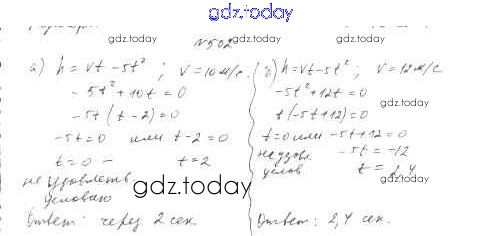 gdz.today
gdz.today gdz.today gdz.today
№502
а) h = vt - 5t²; v = 10 м/с.
- 5t² + 10t = 0
-5t(t - 2) = 0
-5t = 0 или t - 2 = 0
t = 0 – t = 2
не удовлетв.
условию
Ответ: через 2 сек.
б) h = vt - 5t²; v = 12 м/с
-5t² + 12t = 0
gdz.today
t(-5t + 12) = 0
t = 0 или -5t + 12 = 0
не удов. -5t = -12
услов t = 2,4
gdz.today
gdz.today
Ответ: 2,4 сек.